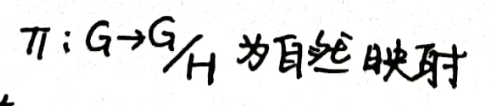 π: G→G/H 为自然映射